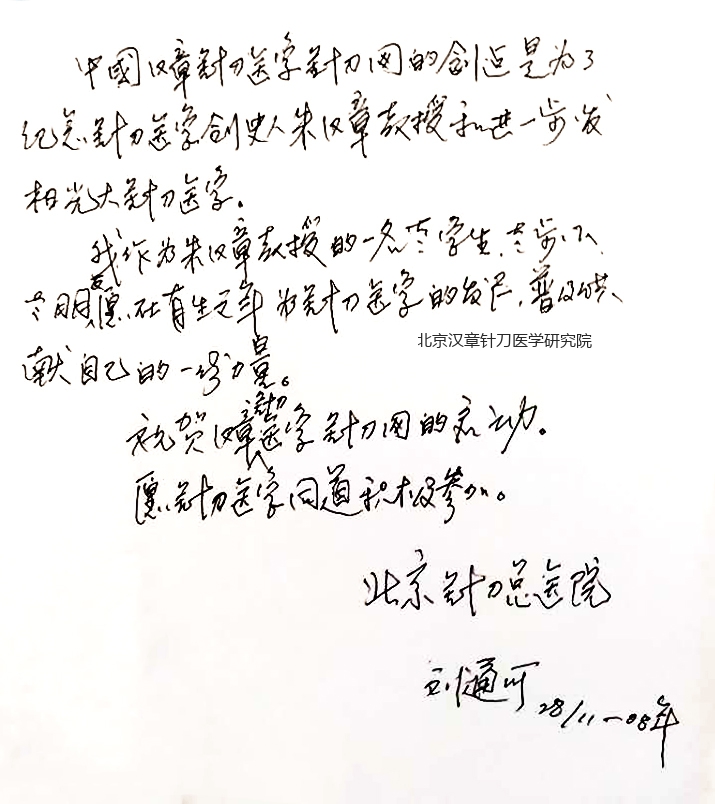 中國汉章针刀医学针刀网的创立是为了
纪念针刀医学创史人朱汉章教授和进一步发
扬光大针刀医学。
我作为朱汉章教授的一名老学生,老步下,
老朋友,愿在有生之年为针刀医学的发展,普及供
北京汉章针刀医学研究院
献自己的一份力量。
祝贺汉章针刀医学针刀网的启动。
愿针刀医学同道积极参加。
北京针刀总医院
刘通
28/11-08年